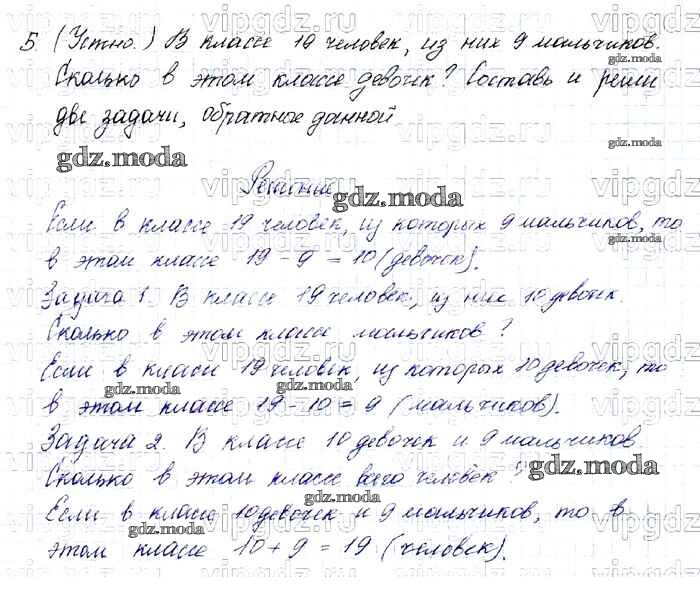 5 (Устно.) В классе 19 человек, из них 9 мальчиков.
Сколько в этом классе девочек? Составь и реши
две задачи, обратные данной
gdz.moda
Решение
gdz.moda
Если в классе 19 человек, из которых 9 мальчиков, то
в этом классе 19 - 9 = 10 (девочек).
Задача 1. В классе 19 человек, из них 10 девочек.
Сколько в этом классе мальчиков?
Если в классе 19 человек, из которых 10 девочек, то
gdz.moda gdz.moda
в этом классе 19 - 10 = 9 (мальчиков).
Задача 2. В классе 10 девочек и 9 мальчиков.
Сколько в этом классе всего человек?
gdz.moda
gdz.moda
Если в классе 10 девочек и 9 мальчиков, то в
gdz.moda
этом классе 10 + 9 = 19 (человек).
vipgdz.ru